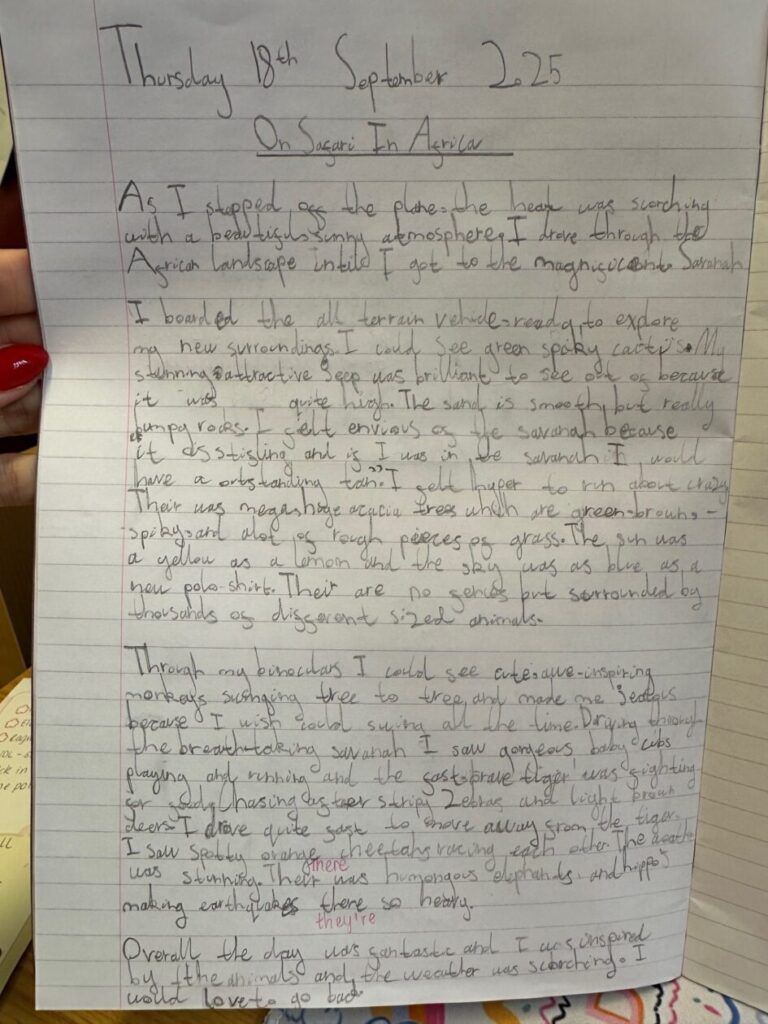 Thursday 18th September 2025
On Safari In Africa
As I stepped off the plane, the heat was scorching
with a beautiful, sunny atmosphere, I drove through the
African landscape intile I got to the magnificent Savanah
I boarded the all terrain vehicle, ready to explore
my new surroundings. I could see green spiky cactis. My
stunning, attractive Jeep was brilliant to see out of because
it was quite high. The sand is smooth but really
bumpy rocks. I felt envious of the savanah because
it and if I was in the savanah I would
have a outstanding tan". I felt hyper to run about crazy
Their was mega huge acacia trees which are green-brown,-
spiky and alot of rough pieces of grass. The sun was
a yellow as a lemon and the sky was as blue as a
new polo-shirt. Their are no fences but surrounded by
thousands of different sized animals.
Through my binoculars I could see cute, awe-inspiring
monkeys swinging tree to tree, and made me jealous
because I wish could swing all the time. Driving through
the breath-taking savanah I saw gorgeous baby cubs
playing and running and the fast, brave tiger was fighting
for Chasing after stripy Zebras and light brown
deers. I drove quite fast to move away from the tiger.
I saw spotty orange cheetahs racing each other. The
was stunning. Their was humongous elephands and hippo's
there
making earthquakes there so heavy.
they're
Overall the day was fantastic and I was inspired
by the animals and the weather was scorching. I
would love to go back